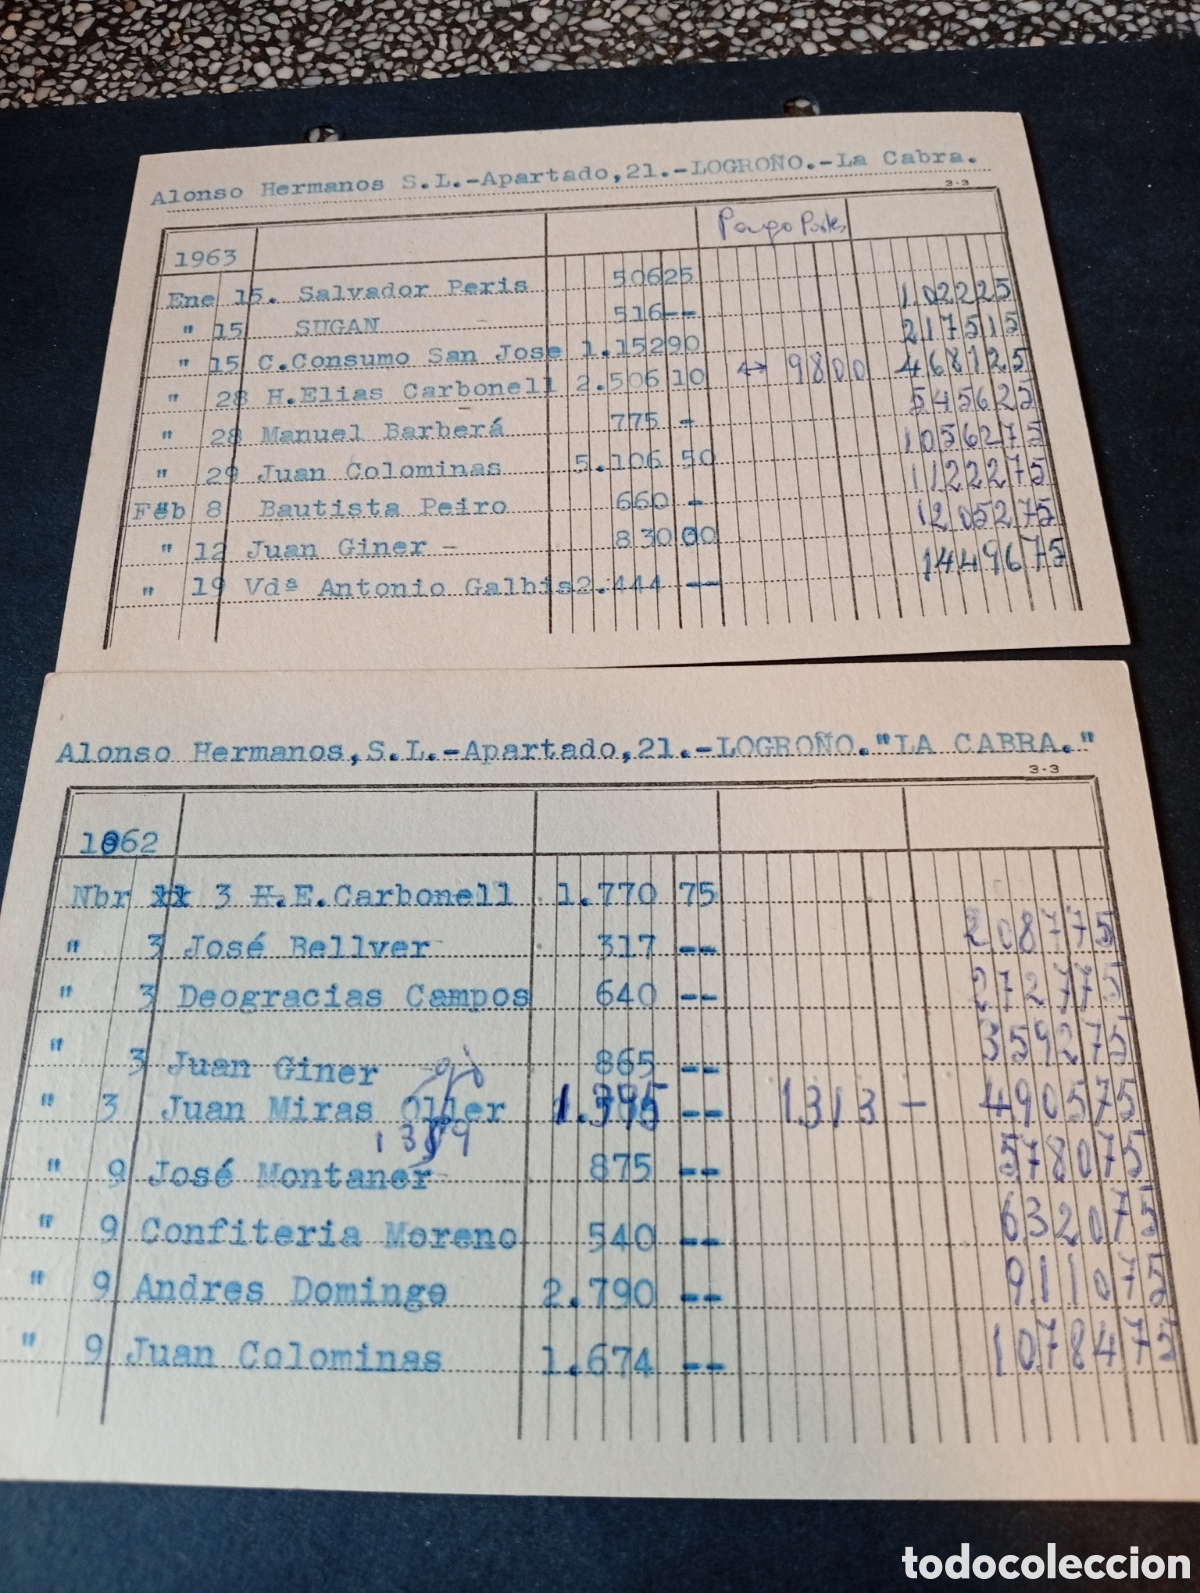 Alonso Hermanos S.L.-Apartado,21.-LOGROÑO.-La Cabra.
3-3
1963 Pongo Portes
Ene 15. Salvador Peris 50625
" 15 SUGAN 516-- 102225
" 15 C.Consumo San Jose 1.15290 217515
" 28 H.Elias Carbonell 2.506 10 ↔ 9800 468125
" 28 Manuel Barberá 775 - 545625
" 29 Juan Colominas 5.106 50 1056275
Feb 8 Bautista Peiro 660 - 1122275
" 12 Juan Giner - 830 00 1205275
" 19 Vdª Antonio Galbis 2.444 -- 1449675
Alonso Hermanos,S.L.-Apartado,21.-LOGROÑO."LA CABRA."
3-3
1962
Nbr xx 3 H.E.Carbonell 1.770 75
" 3 José Bellver 317 -- 208775
" 3 Deogracias Campos 640 -- 272775
" 3 Juan Giner 865 -- 359275
" 3 Juan Miras Oller 1.395 -- 1313 - 490575
" 9 José Montaner 875 -- 578075
" 9 Confiteria Moreno 540 -- 632075
" 9 Andres Domingo 2.790 -- 911075
" 9 Juan Colominas 1.674 -- 1078475
todocoleccion